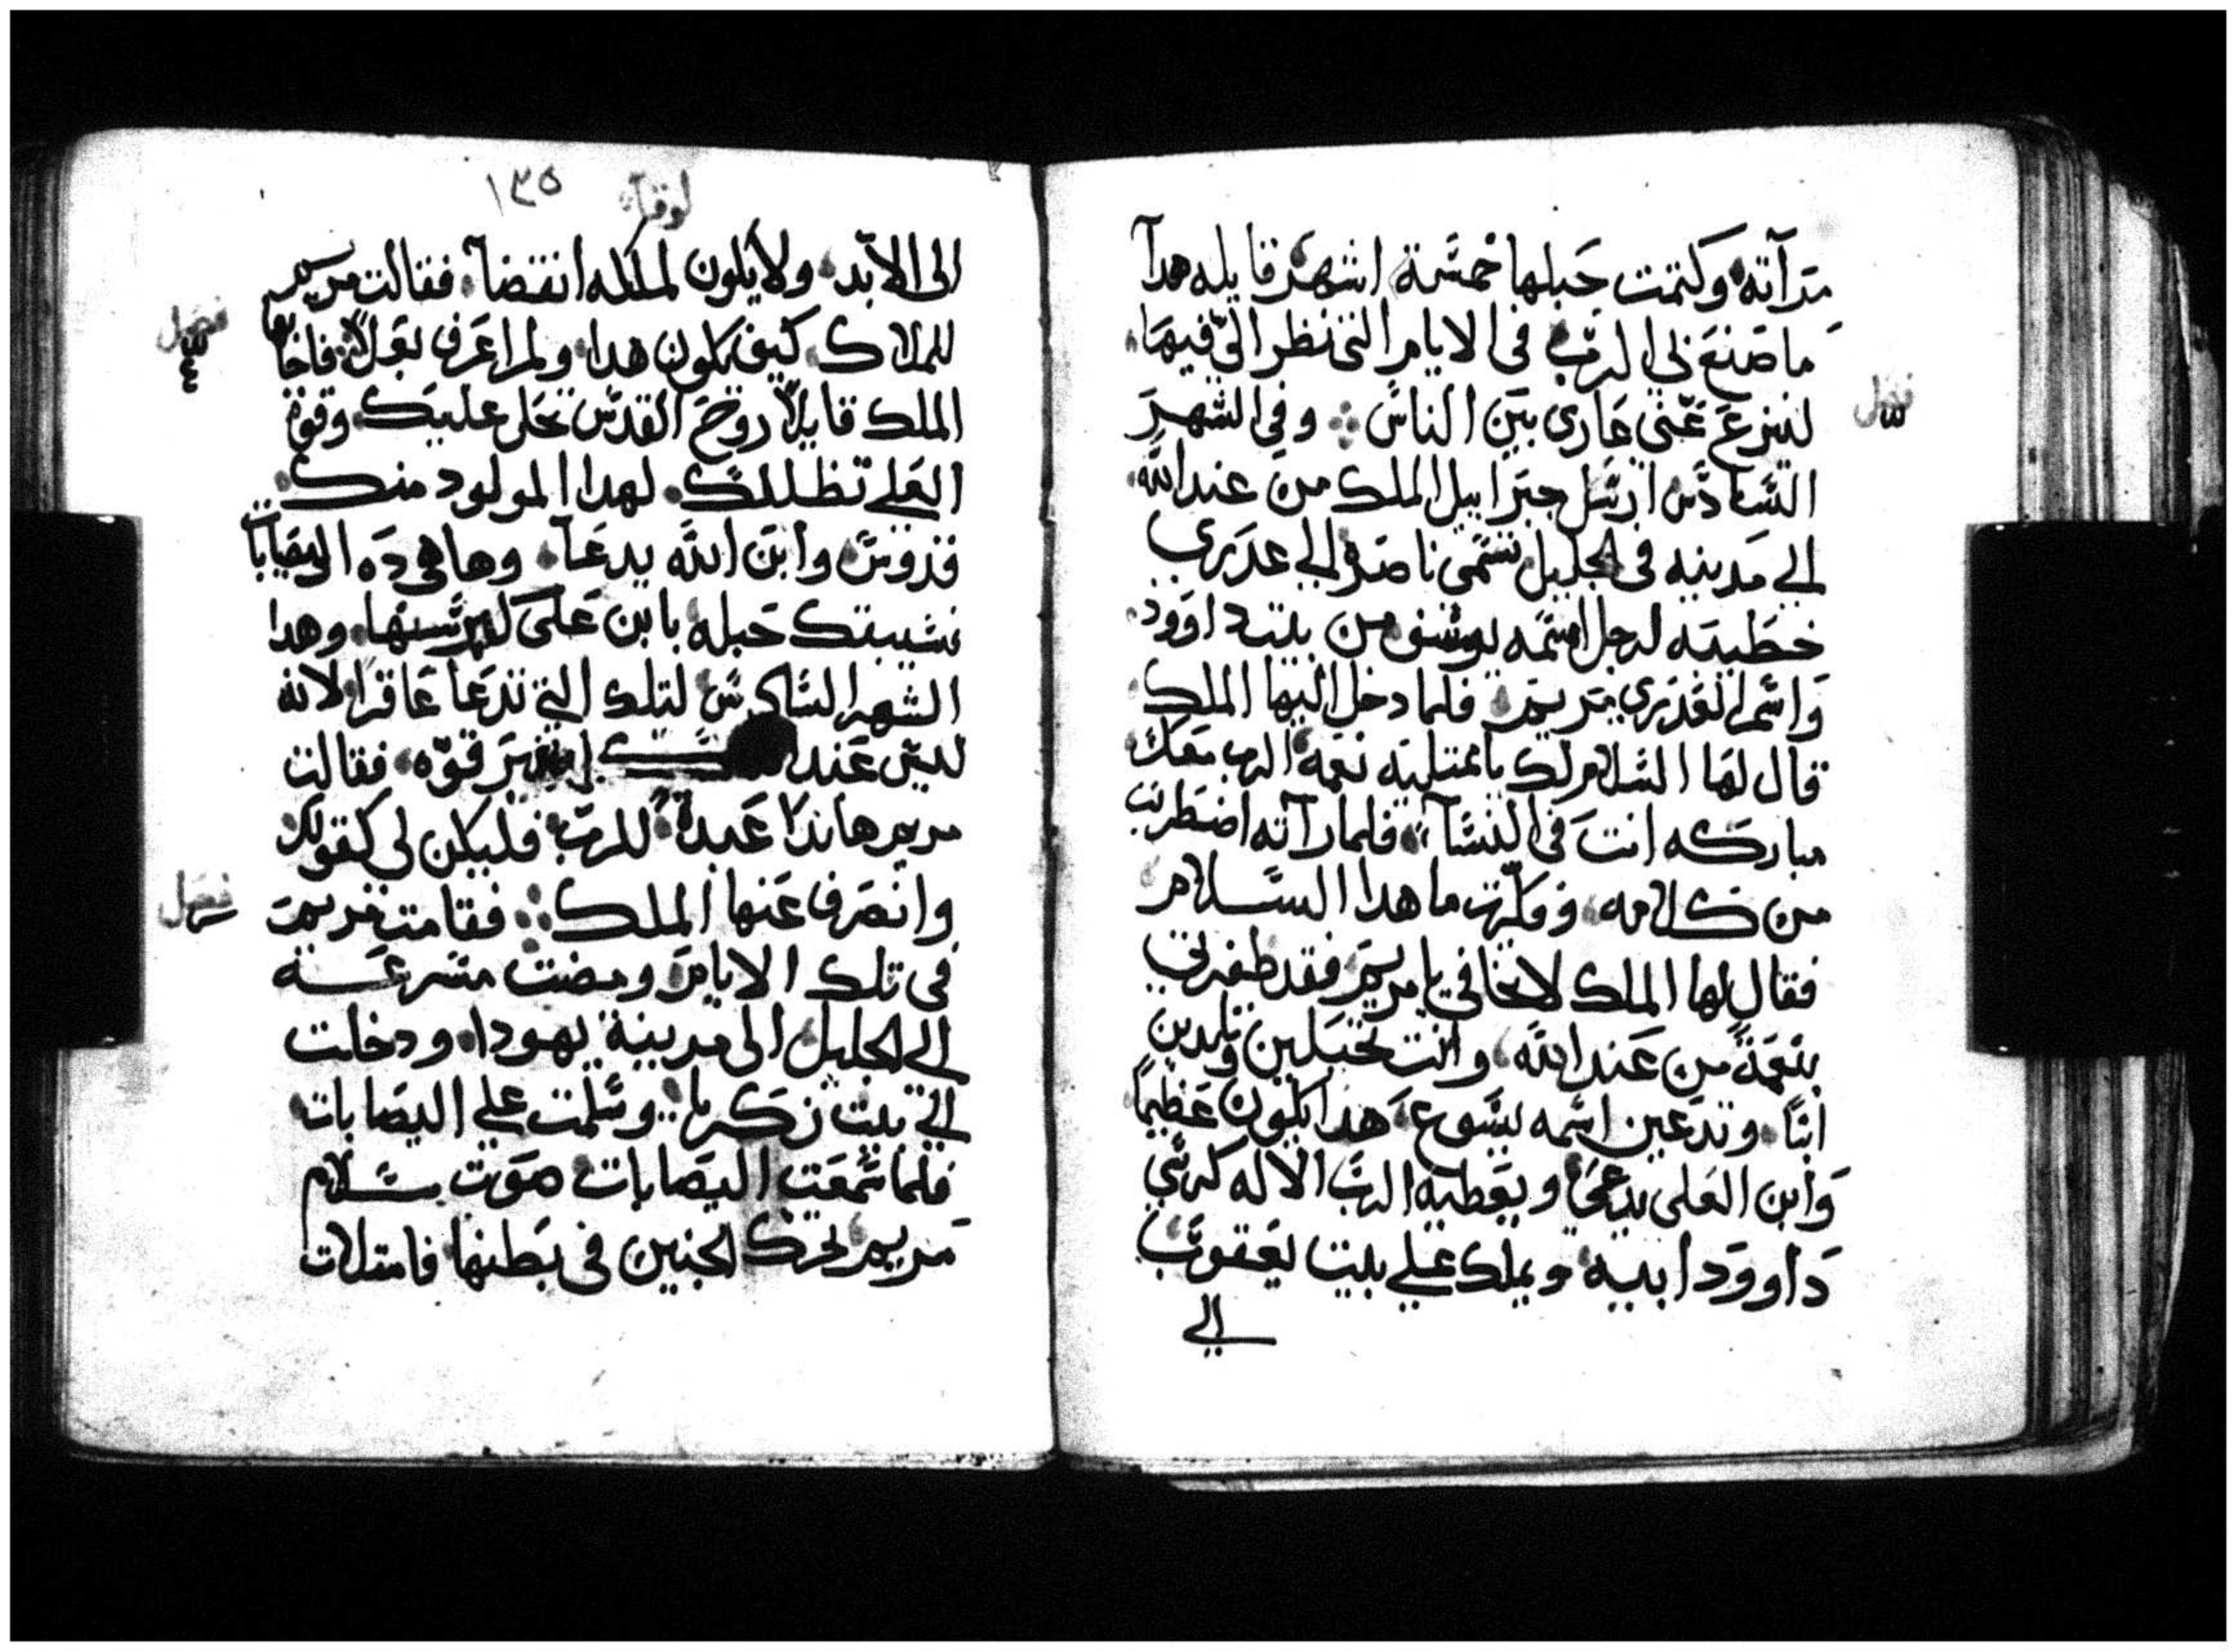 مرآته وكتمت حبلها خمسة اشهر قايله هدا
ما صنع بي الرب في الايام التي نظر الي فيها
لينزع عني عاري بين الناس وفي الشهر
فصل
السادس ارسل جبراييل الملك من عند الله
الي مدينه في الجليل تسمي ناصرة الي عدري
خطيبه لرجل اسمه يوسف من بيت داوود
واسم العدري مريم فلما دخل اليها الملك
قال لها السلام لك يا ممتليه نعمه الرب معك
مباركه انت في النسآ فلما رآته اضطربت
من كلامه وفكرت ما هدا السلام
فقال لها الملك لا تخافي يا مريم فقد ظفرتي
بنعمة من عند الله وانت تحبلين وتلدين
ابنًا وتدعين اسمه يسوع هدا يكون عظيمًا
وابن العلى يدعي ويعطيه الرب الاله كرسي
داوود ابيه ويملك علي بيت يعقوب
الي
لوقا ١٣٥
الى الابد ولا يكون لملكه انقضآ فقالت مريم
للملاك كيف يكون هدا ولم اعرف بعلًا فاجابها
فصل
الملك قايلًا روح القدس تحل عليك وقوة
العلي تظللك لهدا المولود منك
قدوس وابن الله يدعآ وها هي ده اليصابات
نسيبتك حبله بابن على كبر سنها وهدا
الشهر السادس لتلك التي تدعا عاقرا لانه
ليس عند قوه فقالت
مريم هاندا عبدة للرب فليكن لي كقولك
وانصرف عنها الملك فقامت مريم
فصل
في تلك الايام ومضت مسرعه
الي الجليل الى مدينة يهودا ودخلت
الي بيت زكريا وسلمت علي اليصابات
فلما سمعت اليصابات صوت سلام
مريم تحرك الجنين في بطنها فامتلات